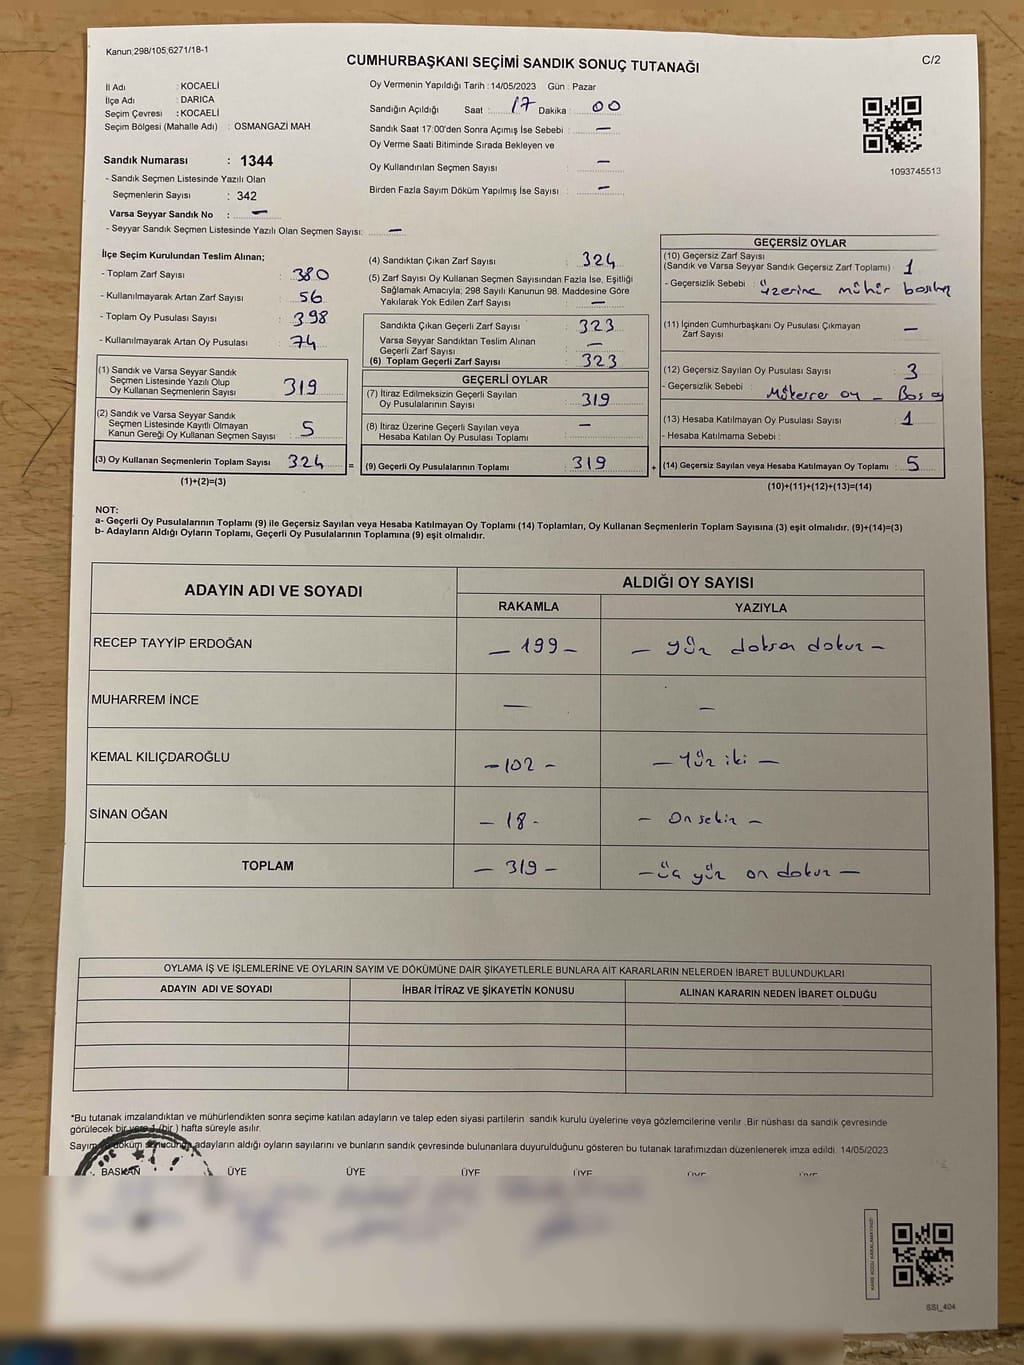 Kanun 298/105,6271/18-1
CUMHURBAŞKANI SEÇİMİ SANDIK SONUÇ TUTANAĞI
C/2
İl Adı : KOCAELİ
İlçe Adı : DARICA
Seçim Çevresi : KOCAELİ
Seçim Bölgesi (Mahalle Adı) : OSMANGAZİ MAH
Sandık Numarası : 1344
- Sandık Seçmen Listesinde Yazılı Olan
Seçmenlerin Sayısı : 342
Varsa Seyyar Sandık No : —
- Seyyar Sandık Seçmen Listesinde Yazılı Olan Seçmen Sayısı: —
Oy Vermenin Yapıldığı Tarih : 14/05/2023 Gün : Pazar
Sandığın Açıldığı Saat : 17 Dakika : 00
Sandık Saat 17:00'den Sonra Açımış İse Sebebi : —
Oy Verme Saati Bitiminde Sırada Bekleyen ve
Oy Kullandırılan Seçmen Sayısı : —
Birden Fazla Sayım Döküm Yapılmış İse Sayısı : —
1093745513
İlçe Seçim Kurulundan Teslim Alınan;
- Toplam Zarf Sayısı : 380
- Kullanılmayarak Artan Zarf Sayısı : 56
- Toplam Oy Pusulası Sayısı : 398
- Kullanılmayarak Artan Oy Pusulası : 74
(1) Sandık ve Varsa Seyyar Sandık
Seçmen Listesinde Yazılı Olup
Oy Kullanan Seçmenlerin Sayısı : 319
(2) Sandık ve Varsa Seyyar Sandık
Seçmen Listesinde Kayıtlı Olmayan
Kanun Gereği Oy Kullanan Seçmen Sayısı : 5
(3) Oy Kullanan Seçmenlerin Toplam Sayısı : 324
(1)+(2)=(3)
(4) Sandıktan Çıkan Zarf Sayısı : 324
(5) Zarf Sayısı Oy Kullanan Seçmen Sayısından Fazla İse, Eşitliği
Sağlamak Amacıyla; 298 Sayılı Kanunun 98. Maddesine Göre
Yakılarak Yok Edilen Zarf Sayısı : —
Sandıkta Çıkan Geçerli Zarf Sayısı : 323
Varsa Seyyar Sandıktan Teslim Alınan
Geçerli Zarf Sayısı : —
(6) Toplam Geçerli Zarf Sayısı : 323
GEÇERLİ OYLAR
(7) İtiraz Edilmeksizin Geçerli Sayılan
Oy Pusulalarının Sayısı : 319
(8) İtiraz Üzerine Geçerli Sayılan veya
Hesaba Katılan Oy Pusulası Toplamı : —
= (9) Geçerli Oy Pusulalarının Toplamı : 319 +
GEÇERSİZ OYLAR
(10) Geçersiz Zarf Sayısı
(Sandık ve Varsa Seyyar Sandık Geçersiz Zarf Toplamı) : 1
- Geçersizlik Sebebi : üzerine mühür
(11) İçinden Cumhurbaşkanı Oy Pusulası Çıkmayan
Zarf Sayısı : —
(12) Geçersiz Sayılan Oy Pusulası Sayısı : 3
- Geçersizlik Sebebi : Mükerrer oy - Boş oy
(13) Hesaba Katılmayan Oy Pusulası Sayısı : 1
- Hesaba Katılmama Sebebi :
(14) Geçersiz Sayılan veya Hesaba Katılmayan Oy Toplamı : 5
(10)+(11)+(12)+(13)=(14)
NOT:
a- Geçerli Oy Pusulalarının Toplamı (9) ile Geçersiz Sayılan veya Hesaba Katılmayan Oy Toplamı (14) Toplamları, Oy Kullanan Seçmenlerin Toplam Sayısına (3) eşit olmalıdır. (9)+(14)=(3)
b- Adayların Aldığı Oyların Toplamı, Geçerli Oy Pusulalarının Toplamına (9) eşit olmalıdır.
ADAYIN ADI VE SOYADI
ALDIĞI OY SAYISI
RAKAMLA YAZIYLA
RECEP TAYYİP ERDOĞAN — 199 — — yüz doksan dokuz —
MUHARREM İNCE — —
KEMAL KILIÇDAROĞLU — 102 — — Yüz iki —
SİNAN OĞAN — 18 - — On sekiz —
TOPLAM — 319 — — üç yüz on dokuz —
OYLAMA İŞ VE İŞLEMLERİNE VE OYLARIN SAYIM VE DÖKÜMÜNE DAİR ŞİKAYETLERLE BUNLARA AİT KARARLARIN NELERDEN İBARET BULUNDUKLARI
ADAYIN ADI VE SOYADI İHBAR İTİRAZ VE ŞİKAYETİN KONUSU ALINAN KARARIN NEDEN İBARET OLDUĞU
*Bu tutanak imzalandıktan ve mühürlendikten sonra seçime katılan adayların ve talep eden siyasi partilerin sandık kurulu üyelerine veya gözlemcilerine verilir .Bir nüshası da sandık çevresinde
görülecek bir yere 1 (bir ) hafta süreyle asılır.
Sayım döküm sonucunda adayların aldığı oyların sayılarını ve bunların sandık çevresinde bulunanlara duyurulduğunu gösteren bu tutanak tarafımızdan düzenlenerek imza edildi. 14/05/2023
BAŞKAN ÜYE ÜYE ÜYE ÜYE ÜYE ÜYE
SSI_404